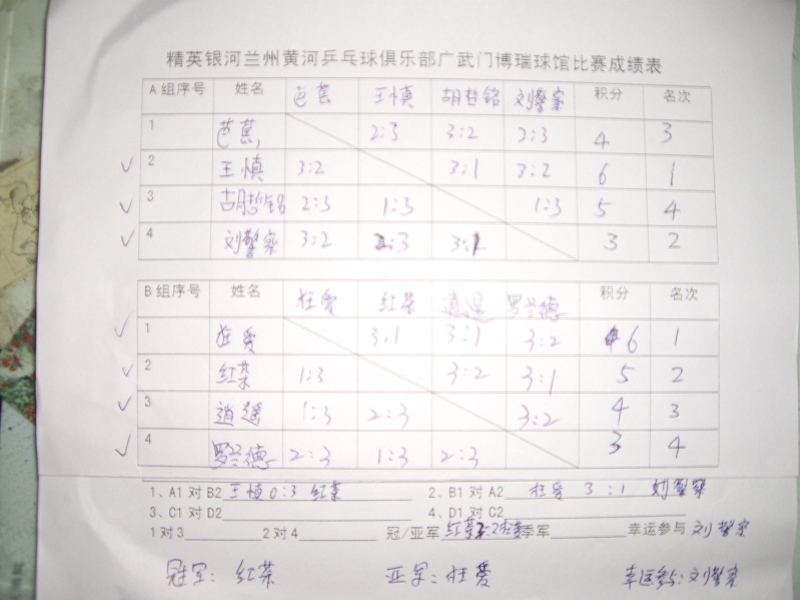 精英银河兰州黄河乒乓球俱乐部广武门博瑞球馆比赛成绩表
A组序号 姓名 芭蕉 王慎 胡哲铭 刘警察 积分 名次
1 芭蕉 2:3 3:2 2:3 4 3
2 王慎 3:2 3:1 3:2 6 1
3 胡哲铭 2:3 1:3 1:3 5 4
4 刘警察 3:2 2:3 3:1 3 2
B组序号 姓名 狂爱 红茶 逍遥 罗兰德 积分 名次
1 狂爱 3:1 3:1 3:2 6 1
2 红茶 1:3 3:2 3:1 5 2
3 逍遥 1:3 2:3 3:2 4 3
4 罗兰德 2:3 1:3 2:3 3 4
1、A1对B2 王慎 0:3 红茶 2、B1对A2 狂爱 3:1 刘警察
3、C1对D2 4、D1对C2
1对3 2对4 冠/亚军 红茶 :2狂爱 季军 幸运参与 刘警察
冠军：红茶 亚军：狂爱 幸运参与：刘警察